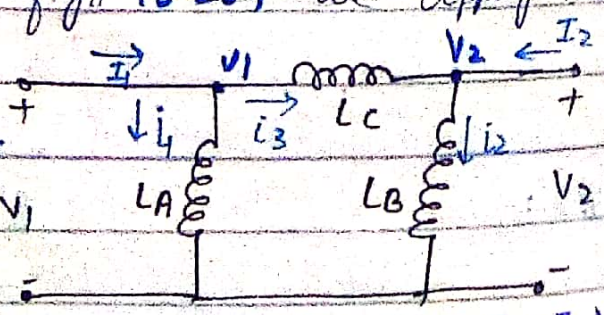 I1 V1 V2 I2
+ i1 i3 LC i2 +
V1 LA LB V2
- -